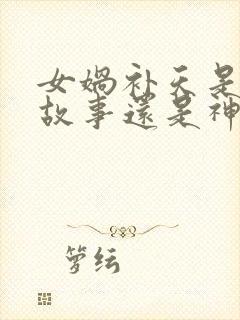 女娲补天是
故事还是神
箩纭